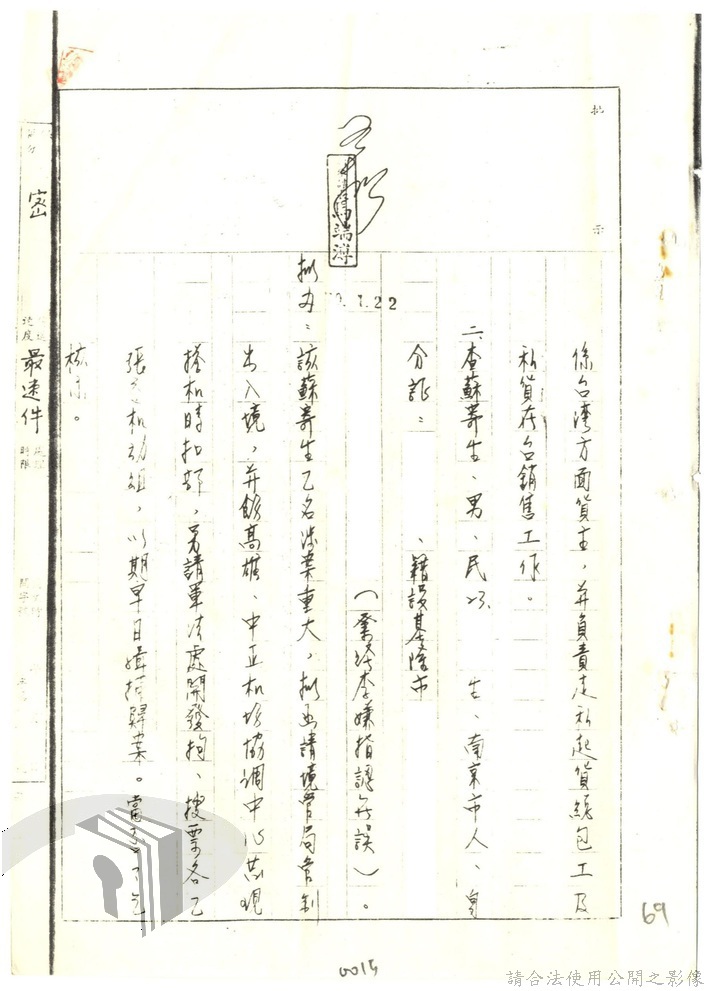 批示
係台湾方面貨主，并負責走私起貨統包工及
私貨在台銷售工作。
二、查蘇壽生、男、民23. 生、南京市人、身
分証： 、籍設基隆市
（業経李嫌指認無誤）。
拟办：該蘇壽生乙名涉案重大，拟函請境管局管制
出入境，并飭高雄、中正机场協調中心发現
搭机時扣部，另請軍法處開發拘、搜票各乙
張 机动組，以期早日緝 歸案。當否？乞
核示。
端溥
7.22
密
最速件
69
0015
請合法使用公開之影像